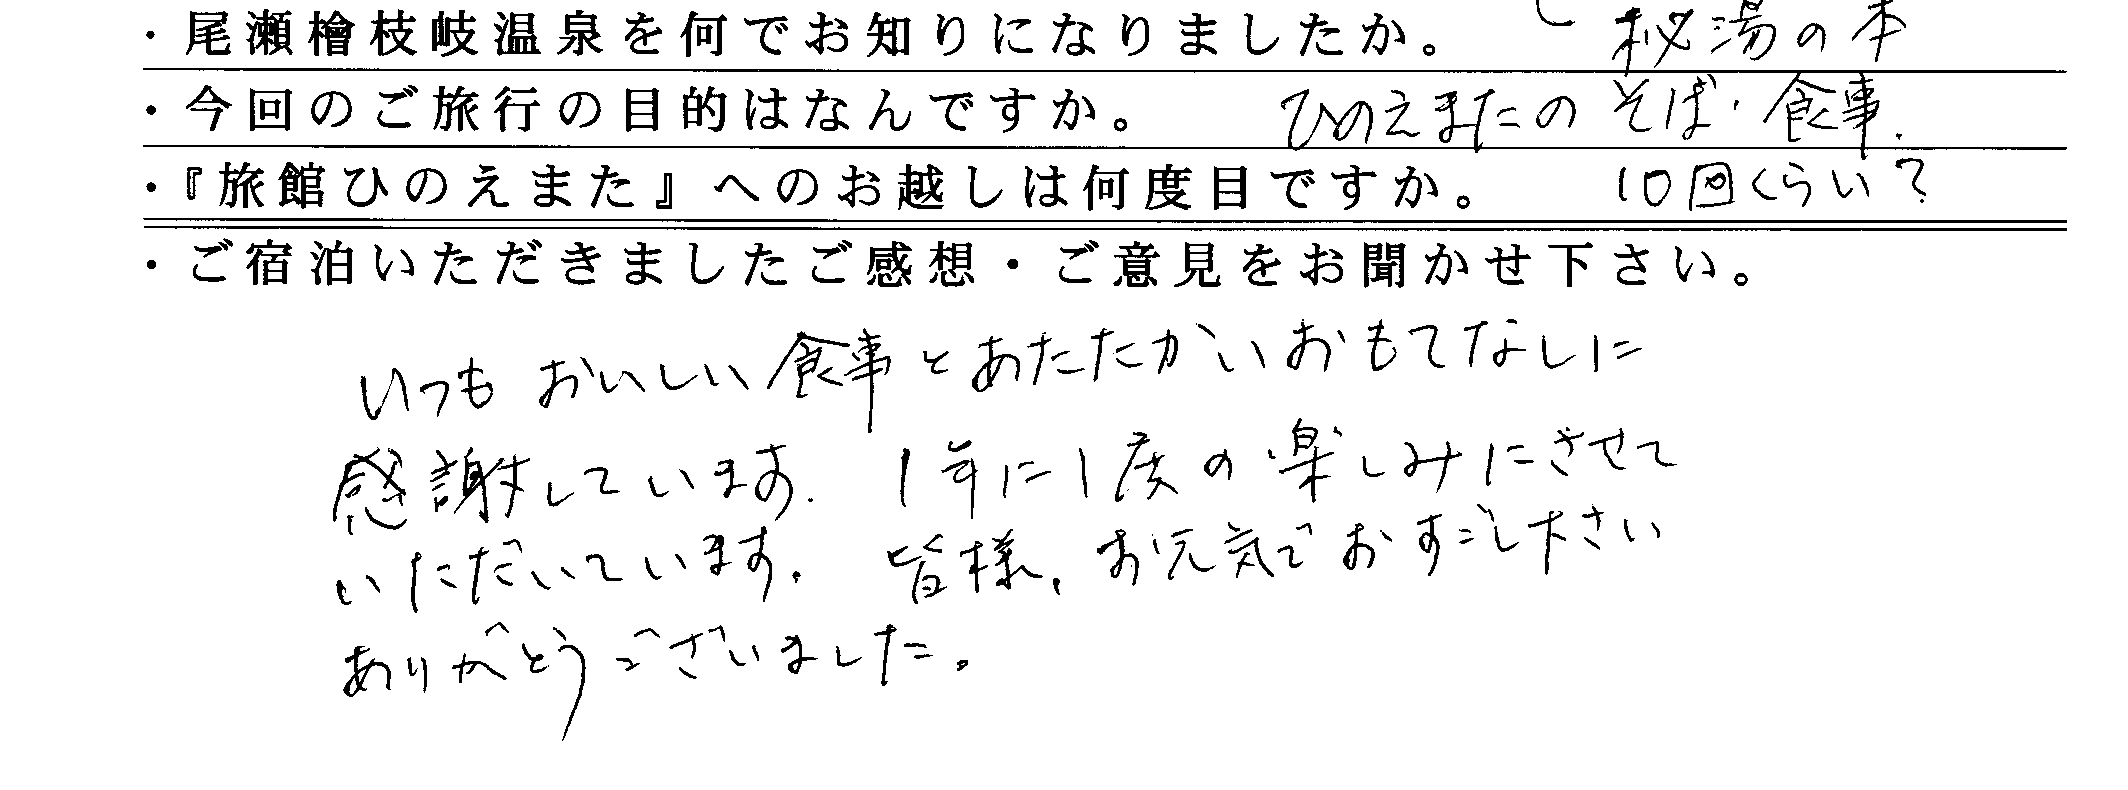 ・尾瀬檜枝岐温泉を何でお知りになりましたか。 秘湯の本
・今回のご旅行の目的はなんですか。 ひのえまたのそば・食事.
・『旅館ひのえまた』へのお越しは何度目ですか。 10回くらい?
・ご宿泊いただきましたご感想・ご意見をお聞かせ下さい。
いつも おいしい食事とあたたかいおもてなしに
感謝しています. 1年に1度の楽しみにさせて
いただいています. 皆様、お元気でおすごし下さい
ありがとうございました。